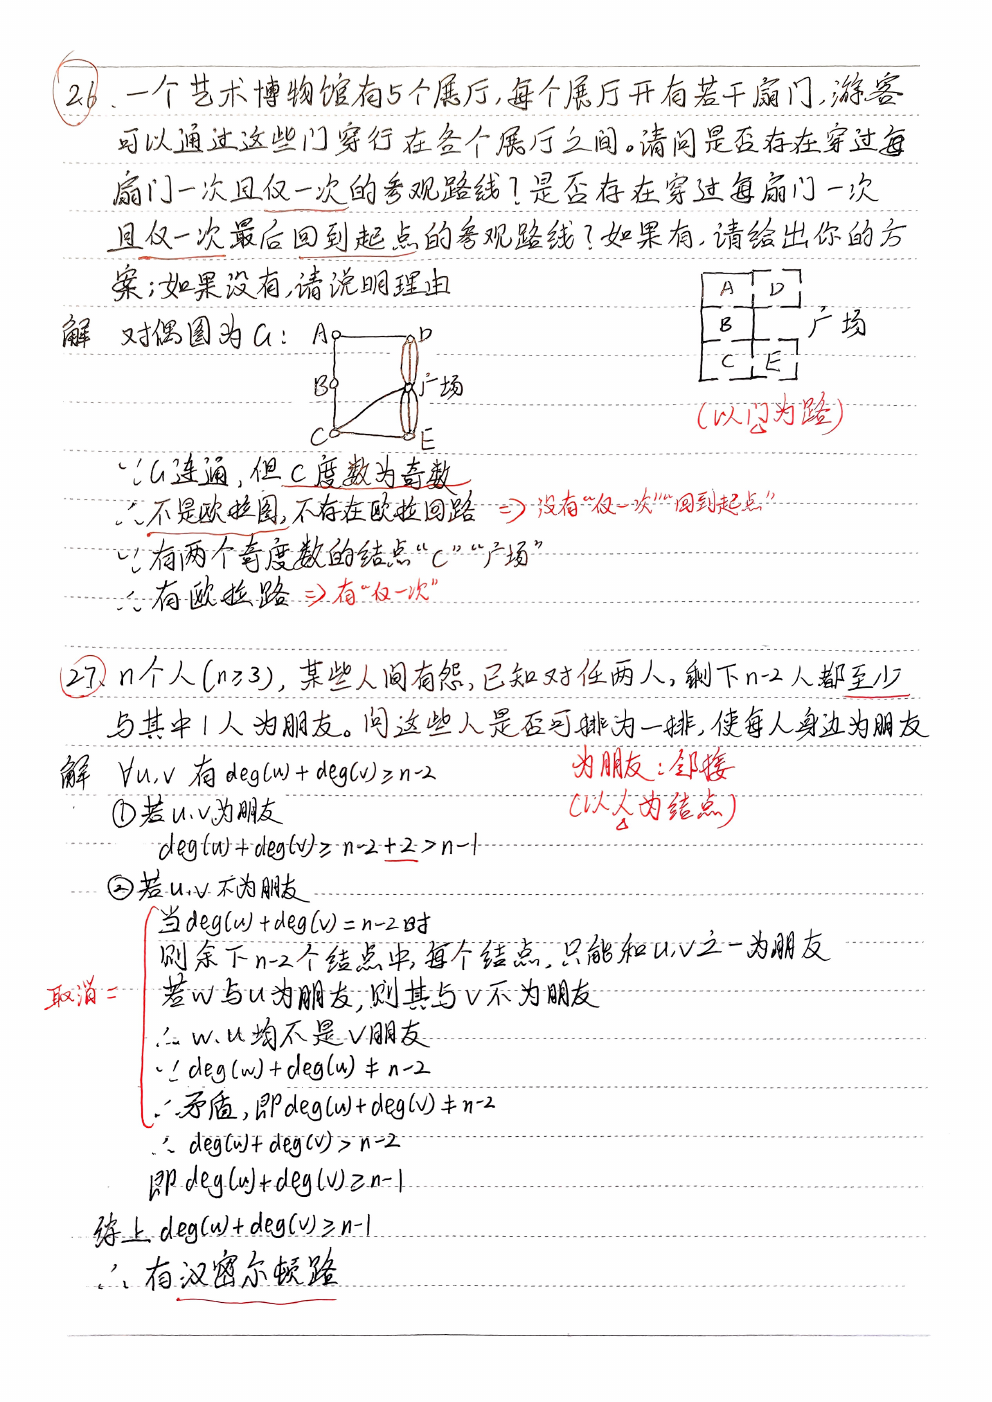 26、一个艺术博物馆有5个展厅,每个展厅开有若干扇门,游客
可以通过这些门穿行在各个展厅之间。请问是否存在穿过每
扇门一次且仅一次的参观路线?是否存在穿过每扇门一次
且仅一次最后回到起点的参观路线?如果有,请给出你的方
案;如果没有,请说明理由
A D
B 广场
C E
(以门为路)
解 对偶图为G:
A D
B 广场
C E
∵G连通,但C度数为奇数
∴不是欧拉图,不存在欧拉回路 => 没有"仅一次""回到起点"
∵有两个奇度数的结点"C""广场"
∴有欧拉路 => 有"仅一次"
27、n个人(n≥3),某些人间有怨,已知对任两人,剩下n-2人都至少
与其中1人为朋友。问这些人是否可排为一排,使每人身边为朋友
解 ∀u,v 有deg(u)+deg(v)≥n-2
为朋友:邻接
(以人为结点)
①若u,v为朋友
deg(u)+deg(v)≥n-2+2>n-1
②若u,v不为朋友
当deg(u)+deg(v)=n-2时
则余下n-2个结点中,每个结点,只能和u,v之一为朋友
取消= 若w与u为朋友,则其与v不为朋友
∴w、u均不是v朋友
∵deg(w)+deg(u)≠n-2
∴矛盾,即deg(u)+deg(v)≠n-2
∴deg(u)+deg(v)>n-2
即deg(u)+deg(v)≥n-1
综上deg(u)+deg(v)≥n-1
∴有汉密尔顿路